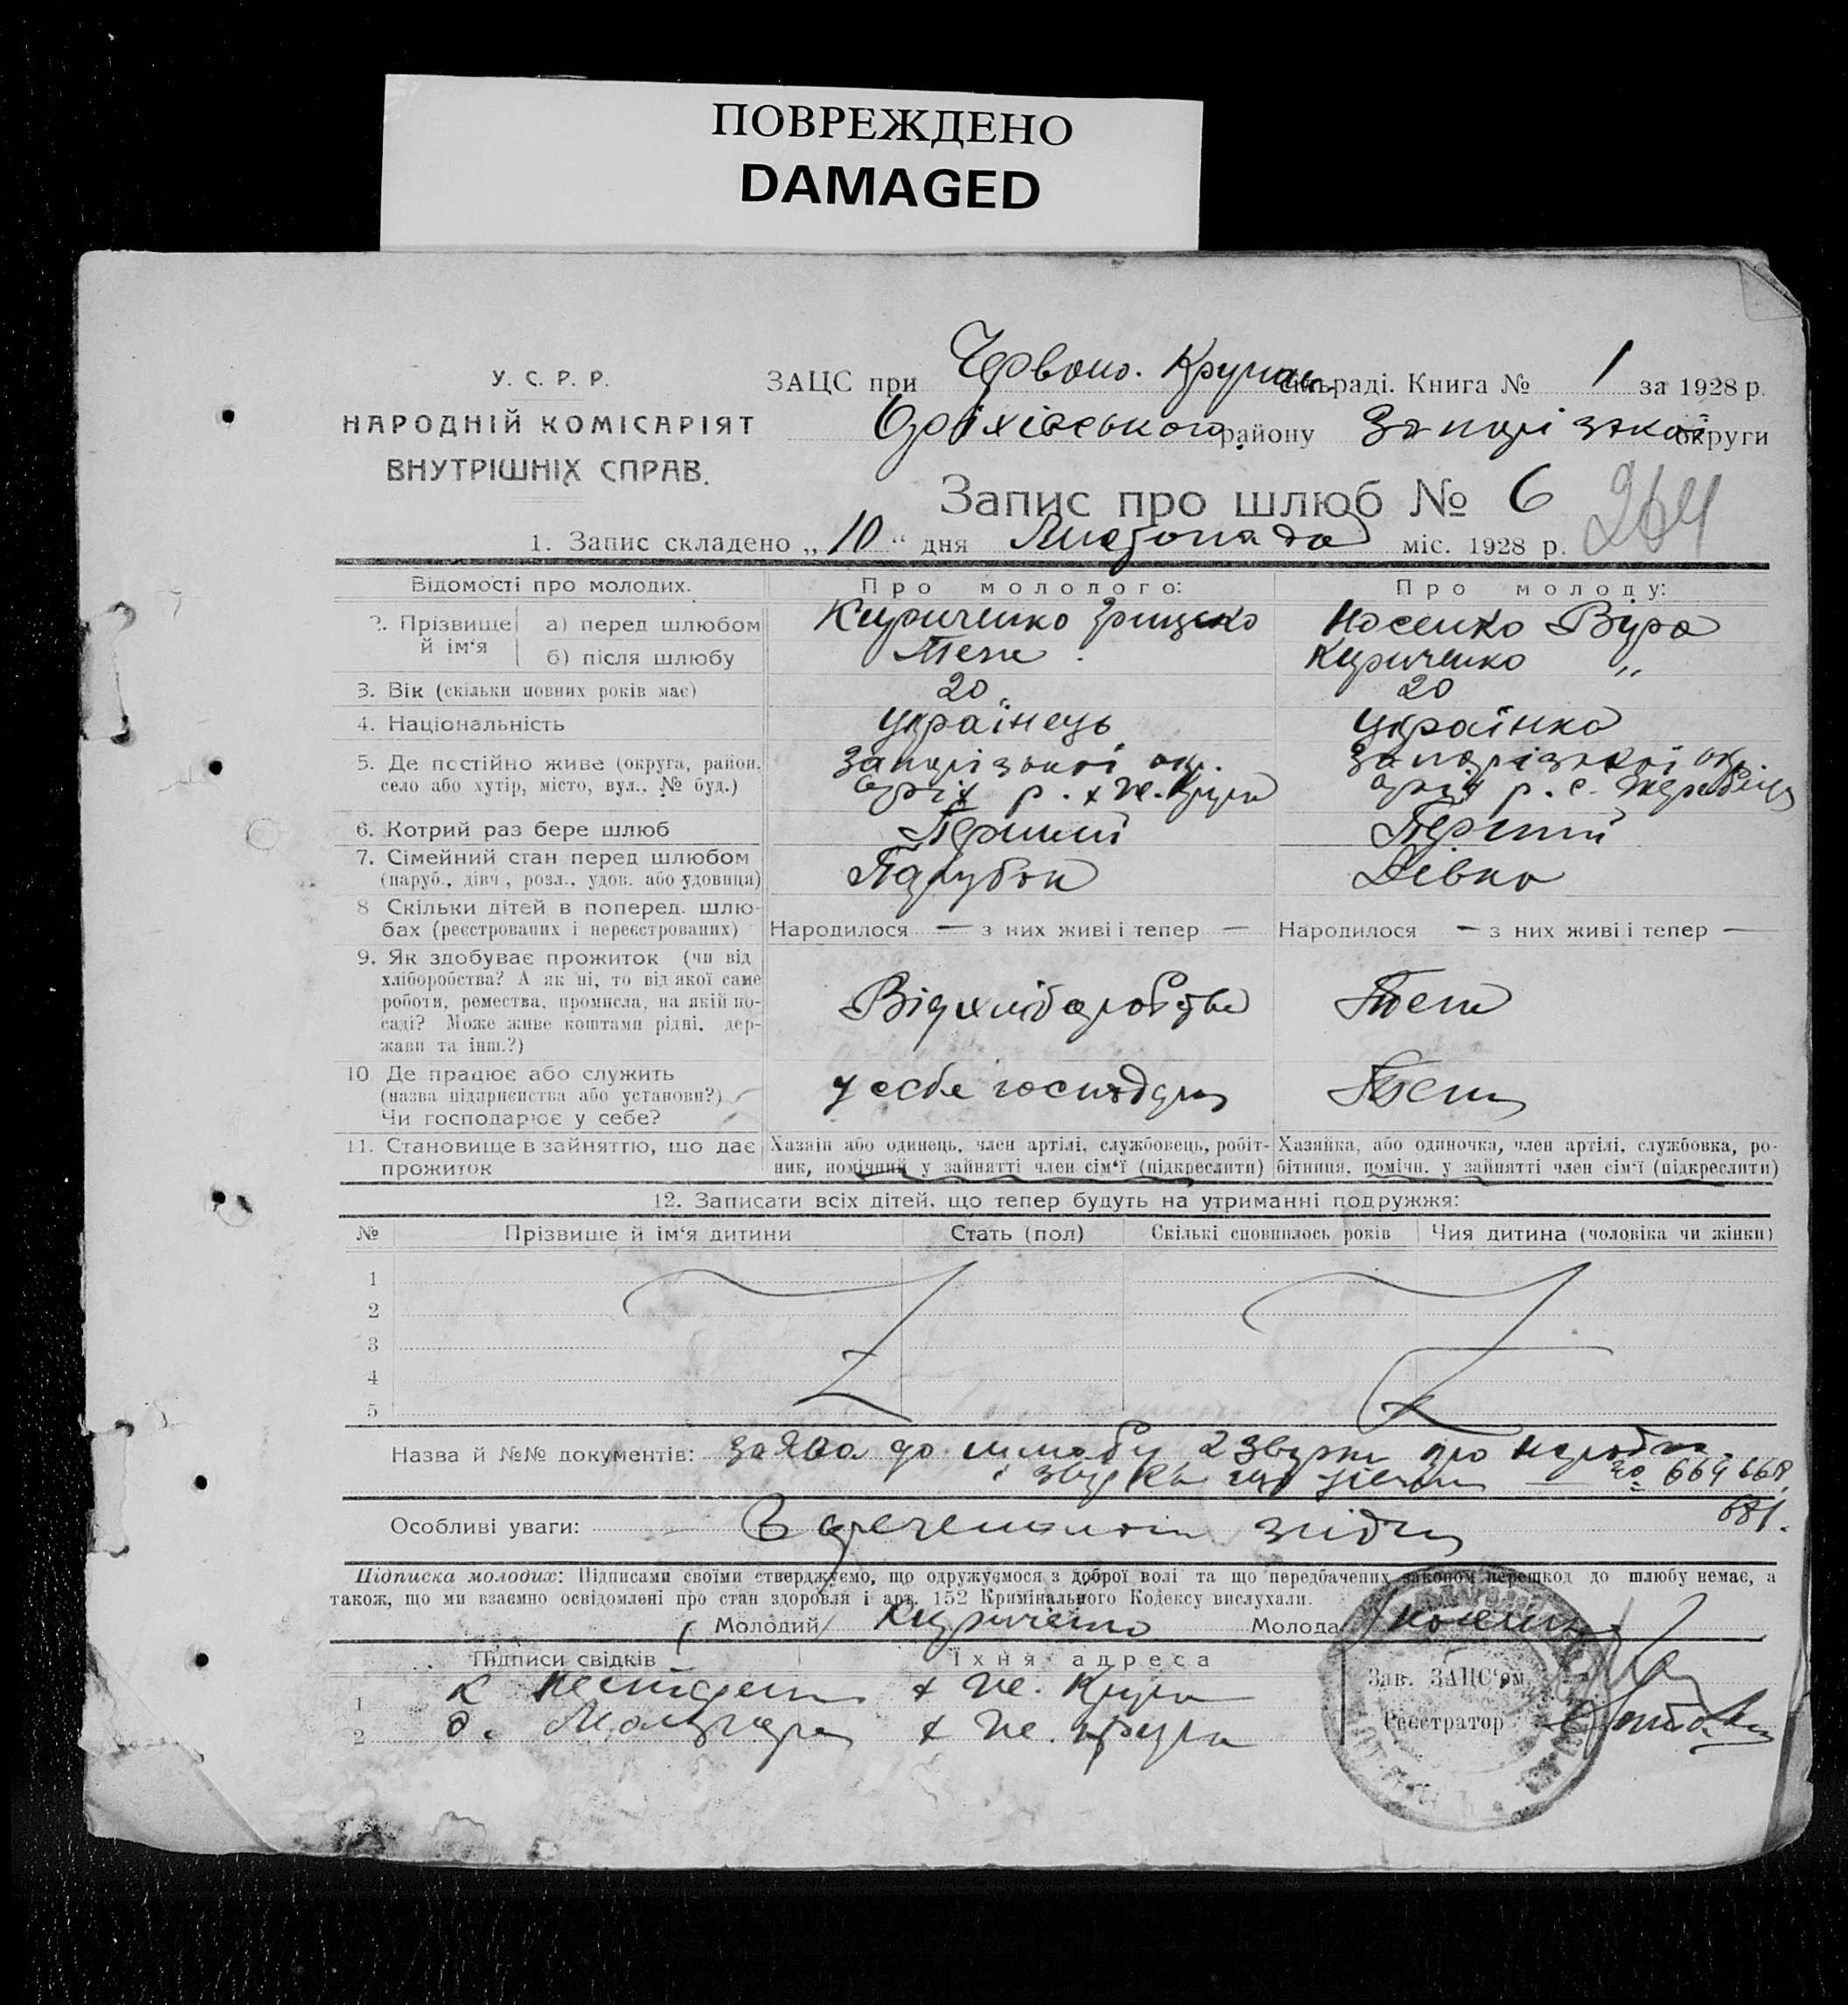 ПОВРЕЖДЕНО
DAMAGED
У. С. Р. Р.
НАРОДНІЙ КОМІСАРІЯТ
ВНУТРІШНІХ СПРАВ.
ЗАЦС при Червоно. сільраді. Книга № 1 за 1928 р.
Оріхівського району Запорізької округи
Запис про шлюб № 6
264
1. Запис складено „10“ дня Листопада міс. 1928 р.
Відомості про молодих. Про молодого: Про молоду:
2. Прізвище й ім‘я а) перед шлюбом Кириченко Грицько Носенко Віра
б) після шлюбу Теж. Кириченко „
3. Вік (скільки повних років має) 20 20
4. Національність Українець Українка
5. Де постійно живе (округа, район, Запорізької окр. Запорізької окр.
село або хутір, місто, вул., № буд.) Оріх р. Оріх р. с. Жеребець
6. Котрий раз бере шлюб Перший Перший
7. Сімейний стан перед шлюбом Парубок Дівка
(паруб., дівч., розл., удов. або удовиця)
8 Скільки дітей в поперед. шлю-
бах (реєстрованих і нереєстрованих) Народилося — з них живі і тепер — Народилося — з них живі і тепер —
9. Як здобуває прожиток (чи від
хліборобства? А як ні, то від якої саме
роботи, ремества, промисла, на якій по- Від хліборобства Теж
саді? Може живе коштами рідні, дер-
жави та інш.?)
10 Де працює або служить
(назва підприємства або установи?) у себе господар Теж
Чи господарює у себе?
11. Становище в зайняттю, що дає Хазяїн або одинець, член артілі, службовець, робіт- Хазяйка, або одиночка, член артілі, службовка, ро-
прожиток ник, помічний у зайнятті член сім‘ї (підкреслити) бітниця, помічн. у зайнятті член сім‘ї (підкреслити)
12. Записати всіх дітей, що тепер будуть на утриманні подружжя:
№ Прізвище й ім‘я дитини Стать (пол) Скількі сповнилось років Чия дитина (чоловіка чи жінки)
1
2
3
4
5
Назва й №№ документів: заява до шлюбу 2 про
664 668
681.
Особливі уваги:
Підписка молодих: Підписами своїми стверджуємо, що одружуємося з доброї волі та що передбачених законом перешкод до шлюбу немає, а
також, що ми взаємно освідомлені про стан здоровля і арт. 152 Кримінального Кодексу вислухали.
Молодий Кириченко Молода
Підписи свідків Їхня адреса
1
2
Зав. ЗАЦС‘ом
Реєстратор